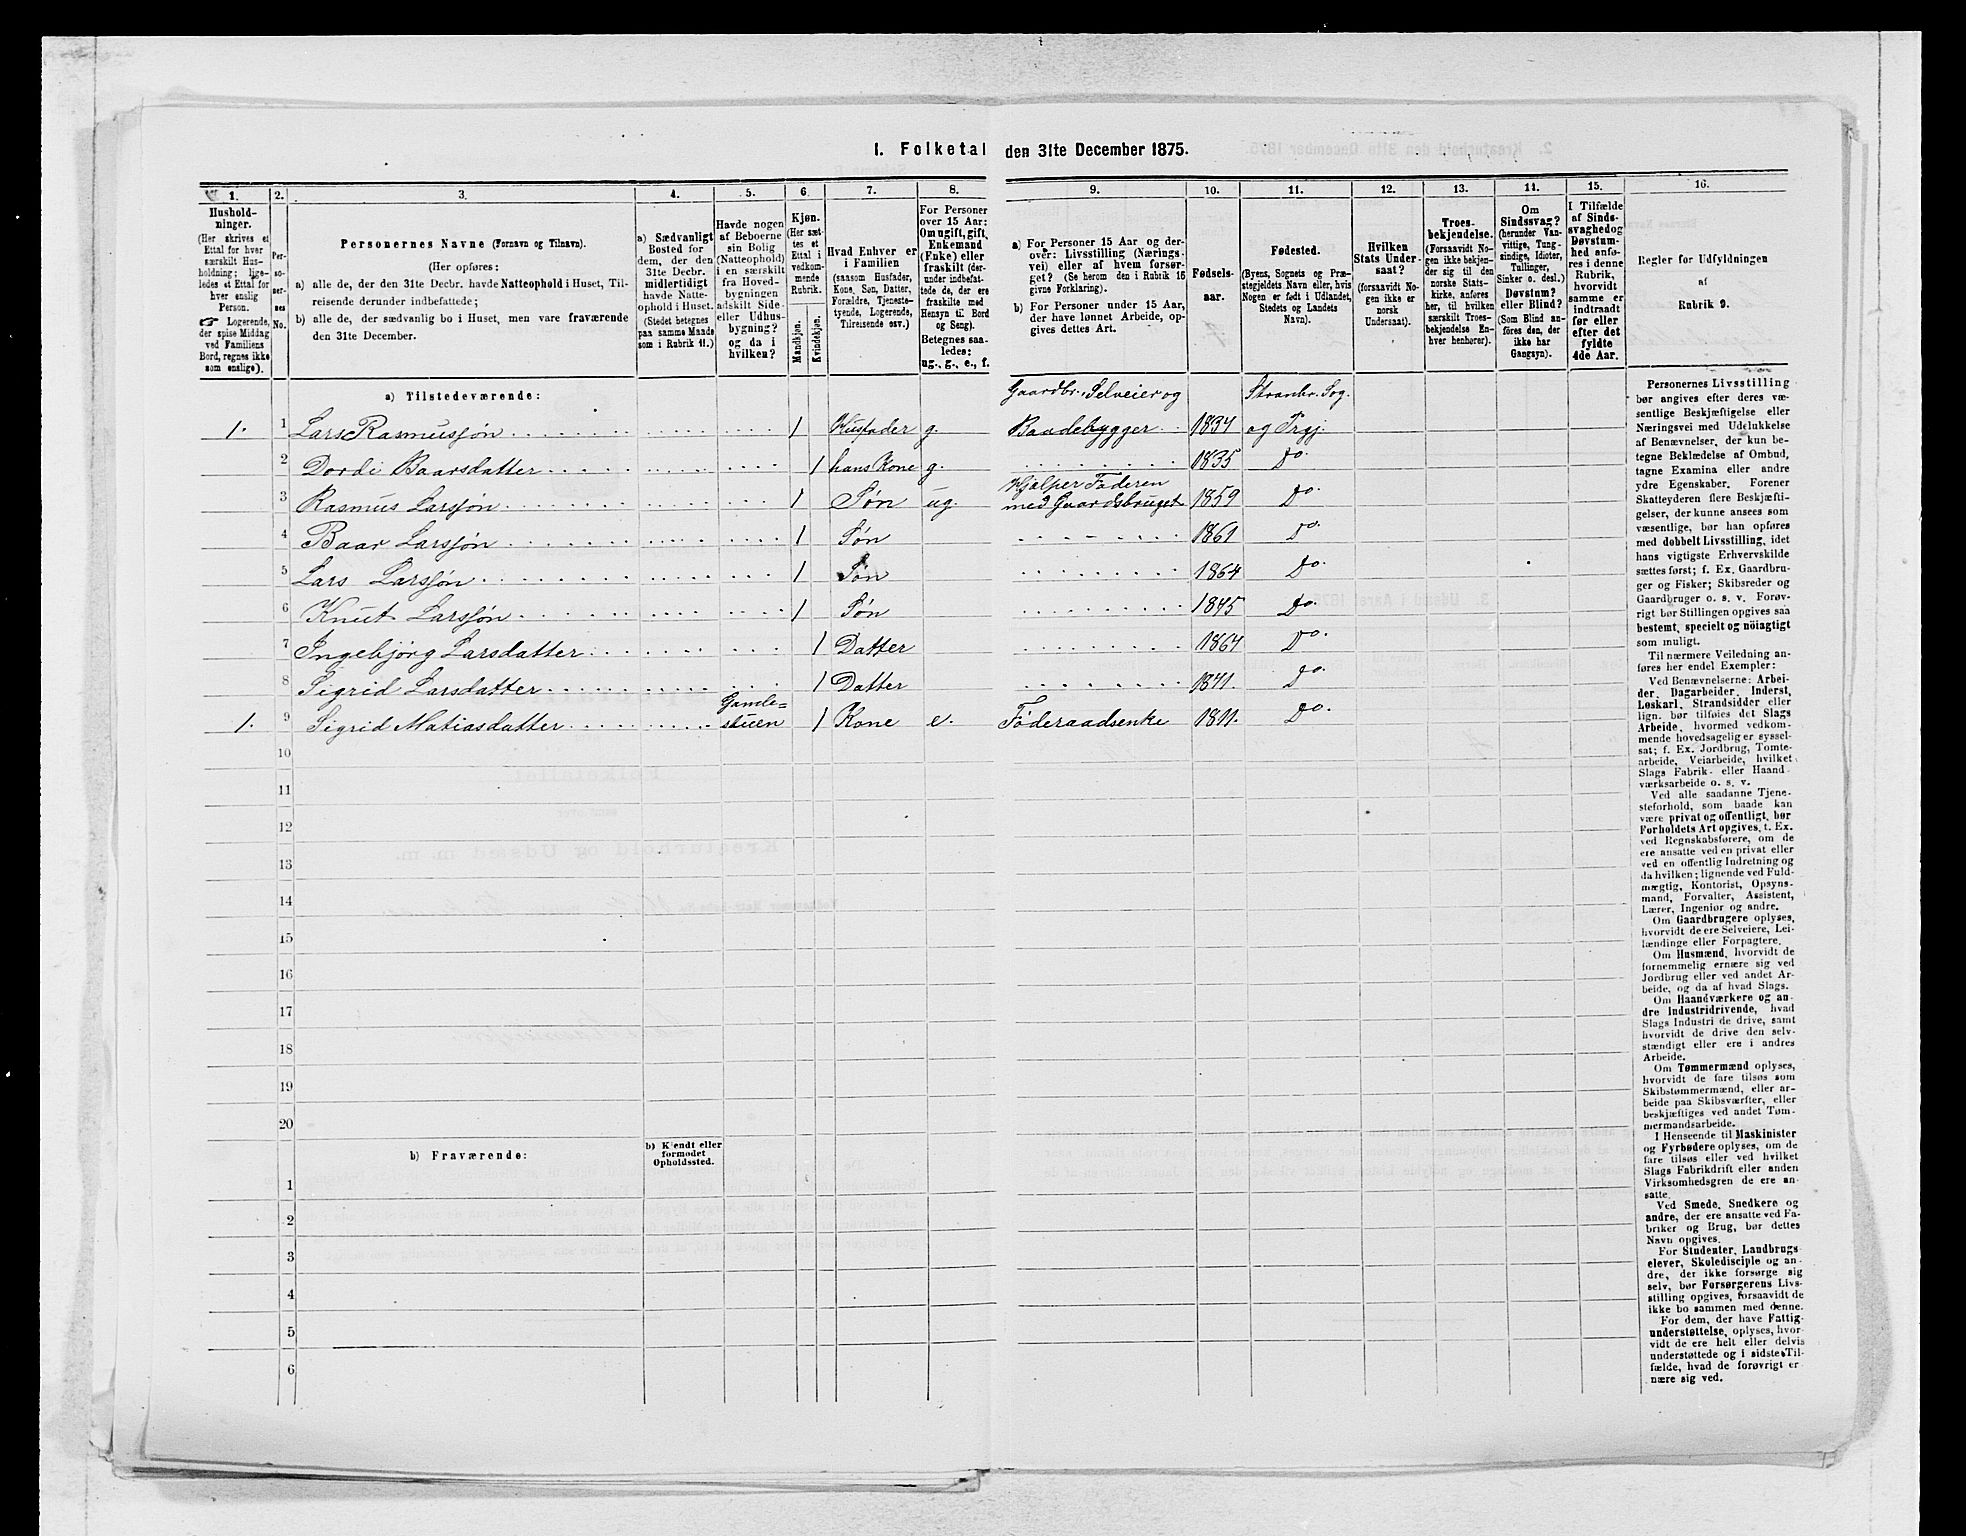 1. Folketal den 31te December 1875.
1. 2. 3. 4. 5. 6. 7. 8. 9. 10. 11. 12. 13. 14. 15. 16.
Hushold-
ninger.
(Her skrives et
Ettal for hver
særskilt Hus-
holdning; lige-
ledes et Ettal for
hver enslig
Person.
☞ Logerende,
der spise Middag
ved Familiens
Bord, regnes ikke
som enslige).
Per-
so-
ner-
nes
No.
Personernes Navne (Fornavn og Tilnavn).
(Her opføres:
a) alle de, der den 31te Decbr. havde Natteophold i Huset, Til-
reisende derunder indbefattede;
b) alle de, der sædvanlig bo i Huset, men vare fraværende
den 31te December.
a) Sædvanligt
Bosted for
dem, der den
31te Decbr.
midlertidigt
havde Natte-
ophold i Huset.
(Stedet betegnes
paa samme Maade
som i Rubrik 11.)
Havde nogen
af Beboerne
sin Bolig
(Natteophold)
i en særskilt
fra Hoved-
bygningen
adskilt Side-
eller Udhus-
bygning?
og da i
hvilken?
Kjøn.
(Her sæt-
tes et
Ettal i
vedkom-
mende
Rubrik.
Mandkjøn.
Kvindekjøn.
Hvad Enhver er
i Familien
(saasom Husfader,
Kone, Søn, Datter,
Forældre, Tjeneste-
tyende, Logerende,
Tilreisende osv.)
For Personer
over 15 Aar:
Om ugift, gift,
Enkemand
(Enke) eller
fraskilt (der-
under indbefat-
tede de, der ere
fraskilte med
Hensyn til Bord
og Seng).
Betegnes saa-
ledes:
ug., g., e., f.
a) For Personer 15 Aar og der-
over: Livsstilling (Nærings-
vei) eller af hvem forsør-
get? (Se herom den i Rubrik 16
givne Forklaring).
b) For Personer under 15 Aar,
der have lønnet Arbeide, op-
gives dettes Art.
Fødsels-
aar.
Fødested.
(Byens, Sognets og Præ-
stegjeldets Navn eller, hvis
Nogen er født i Udlandet,
Stedets og Landets
Navn).
Hvilken
Stats Under-
saat?
(forsaavidt No-
gen ikke er
norsk
Undersaat).
Troes-
bekjendelse.
(Forsaavidt No-
gen ikke bekjen-
der sig til den
norske Stats-
kirke, anføres
her, til hvilken
særskilt Troes-
bekjendelse En-
hver henhører).
Om
Sindssvag?
(herunder Van-
vittige, Tung-
sindige, Idioter,
Tullinger,
Sinker o. desl.)
Døvstum?
eller Blind?
(Som Blind an-
føres den, der
ikke har
Gangsyn).
I Tilfælde
af Sinds-
svaghed og
Døvstum-
hed anfø-
res i denne
Rubrik,
hvorvidt
samme er
indtraadt
før eller
efter det
fyldte
4de Aar.
Regler for Udfyldningen
af
Rubrik 9.
a) Tilstedeværende:
Gaardbr. Selveier og Stranbr. Sog.
1. 1 Lars Rasmussøn 1 Husfader g. Baadebygger 1834 og Prgj.
2 Dordi Baarsdatter 1 hans Kone g. 1835 Do.
Hjælper Faderen
3 Rasmus Larssøn 1 Søn ug. med Gaardsbruget 1859 Do.
4 Baar Larssøn 1 Søn 1861 Do.
5 Lars Larssøn 1 Søn 1864 Do.
6 Knut Larssøn 1 Søn 1845 Do.
7 Ingebjörg Larsdatter 1 Datter 1864 Do.
8 Sigrid Larsdatter 1 Datter 1841. Do.
Gamle=
1. 9 Sigrid Matiasdatter stuen 1 Kone e. Föderaadsenke 1811. Do.
10
11
12
13
14
15
16
17
18
19
20
b) Fraværende:
b) Kjendt eller
formodet
Opholdssted.
1
2
3
4
5
6
Personernes Livsstilling
bør angives efter deres væ-
sentlige Beskjæftigelse eller
Næringsvei med Udelukkelse
af Benævnelser, der kun be-
tegne Beklædelse af Ombud,
tagne Examina eller andre
ydre Egenskaber. Forener
Skatteyderen flere Beskjæfti-
gelser, der kunne ansees som
væsentlige, bør han opføres
med dobbelt Livsstilling, idet
hans vigtigste Erhvervskilde
sættes først; f. Ex. Gaardbru-
ger og Fisker; Skibsreder og
Gaardbruger o. s. v. Forøv-
rigt bør Stillingen opgives saa
bestemt, specielt og nöiagtigt
som muligt.
Til nærmere Veiledning an-
føres her endel Exempler:
Ved Benævnelserne: Arbei-
der, Dagarbeider, Inderst,
Løskarl, Strandsidder eller
lign. bør tilføies det Slags
Arbeide, hvormed vedkom-
mende hovedsagelig er syssel-
sat; f. Ex. Jordbrug, Tomte-
arbeide, Veiarbeide, hvilket
Slags Fabrik- eller Haand-
værksarbeide o. s. v.
Ved alle saadanne Tjene-
steforhold, som baade kan
være privat og offentligt, bør
Forholdets Art opgives, t. Ex.
ved Regnskabsførere, om de
ere ansatte ved en privat eller
ved en offentlig Indretning og
da hvilken; lignende ved Fuld-
mægtig, Kontorist, Opsyns-
mand, Forvalter, Assistent,
Lærer, Ingeniør og andre.
Om Gaardbrugere oplyses,
hvorvidt de ere Selveiere, Lei-
lændinge eller Forpagtere.
Om Husmænd, hvorvidt de
fornemmelig ernære sig ved
Jordbrug eller ved andet Ar-
beide, og da af hvad Slags.
Om Haandværkere og an-
dre Industridrivende, hvad
Slags Industri de drive, samt
hvorvidt de drive den selv-
stændigt eller ere i andres
Arbeide.
Om Tømmermænd oplyses,
hvorvidt de fare tilsøs som
Skibstømmermænd, eller ar-
beide paa Skibsværfter, eller
beskjæftiges ved andet Tøm-
mermandsarbeide.
I Henseende til Maskinister
og Fyrbødere oplyses, om de
fare tilsøs eller ved hvilket
Slags Fabrikdrift eller anden
Virksomhedsgren de ere an-
satte.
Ved Smede, Snedkere og
andre, der ere ansatte ved Fa-
briker og Brug, bør dettes
Navn opgives.
For Studenter, Landbrugs-
elever, Skoledisciple og an-
dre, der ikke forsørge sig
selv, bør Forsørgerens Livs-
stilling opgives, forsaavidt de
ikke bo sammen med denne.
For dem, der have Fattig-
understøttelse, oplyses, hvor-
vidt de ere helt eller delvis
understøttede og i sidste Til-
fælde, hvad de forøvrigt er-
nære sig ved.